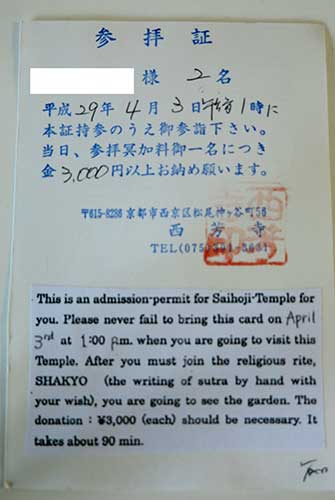 参拝証
様 2名
平成29年4月3日午後1時に
本証持参のうえ御参詣下さい。
当日、参拝冥加料御一名につき
金3,000円以上お納め願います。
〒615-8286 京都市西京区松尾神ヶ谷町56
西芳寺
TEL(075)391-3631
This is an admission-permit for Saihoji-Temple for
you. Please never fail to bring this card on April
3rd at 1:00 p.m. when you are going to visit this
Temple. After you must join the religious rite,
SHAKYO (the writing of sutra by hand with
your wish), you are going to see the garden. The
donation : ¥3,000 (each) should be necessary. It
takes about 90 min.